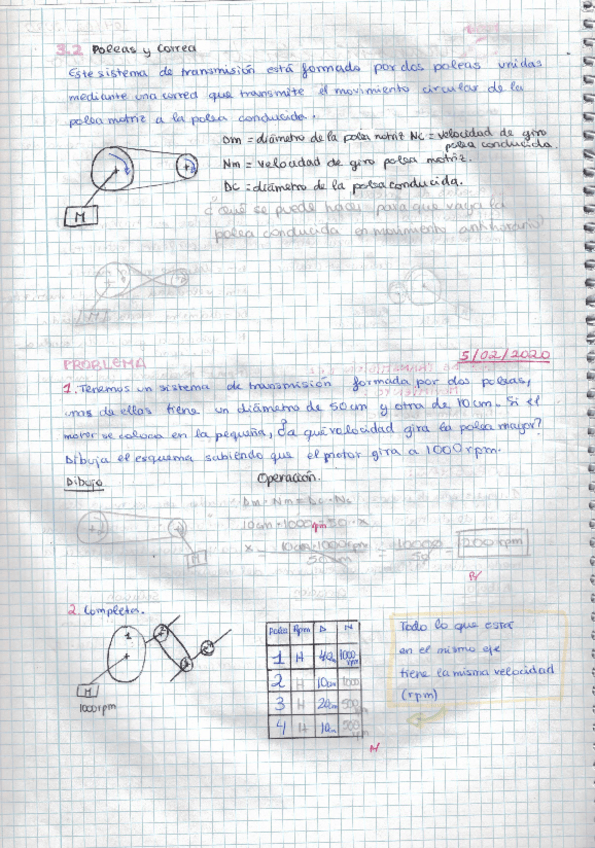 3.2 Poleas y Correa
Este sistema de transmisión está formado por dos poleas unidas
mediante una correa que transmite el movimiento circular de la
polea motriz a la polea conducida.
Dm = diámetro de la polea motriz Nc = velocidad de giro
polea conducida.
Nm = velocidad de giro polea motriz.
Dc = diámetro de la polea conducida.
M
¿Qué se puede hacer para que vaya la
polea conducida en movimiento antihorario?
M
PROBLEMA
5/02/2020
1. Tenemos un sistema de transmisión formada por dos poleas,
unas de ellas tiene un diámetro de 50cm y otra de 10cm. Si el
motor se coloca en la pequeña, ¿a qué velocidad gira la polea mayor?
Dibuja el esquema sabiendo que el motor gira a 1000rpm.
Dibujo Operación.
Dm · Nm = Dc · Nc
10cm · 1000rpm = 50 · x
x = 10cm·1000rpm / 50cm = 10000 / 50 = 200rpm
M
2. Completa.
1
M
1000rpm
Rpm D N
1 H 40 1000 rpm
2 H 10cm 1000
3 H 20cm 500
4 H 10cm
Todo lo que esta
en el mismo eje
tiene la misma velocidad
(rpm)